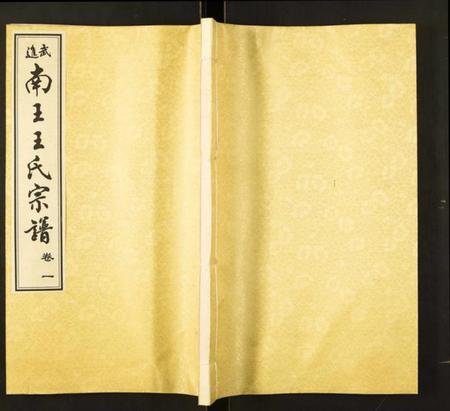 武進
南王王氏宗譜
卷一